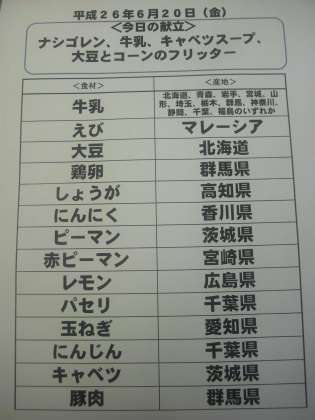 平成26年6月20日（金）
＜今日の献立＞
ナシゴレン、牛乳、キャベツスープ、
大豆とコーンのフリッター
＜食材＞ ＜産地＞
牛乳 北海道、青森、岩手、宮城、山
形、埼玉、栃木、群馬、神奈川、
静岡、千葉、福島のいずれか
えび マレーシア
大豆 北海道
鶏卵 群馬県
しょうが 高知県
にんにく 香川県
ピーマン 茨城県
赤ピーマン 宮崎県
レモン 広島県
パセリ 千葉県
玉ねぎ 愛知県
にんじん 千葉県
キャベツ 茨城県
豚肉 群馬県